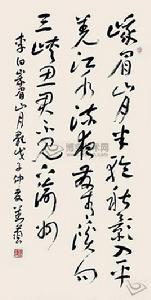 峨眉山月半轮秋影入平
羌江水流夜发清溪向
三峡思君不见下渝州
李白峨眉山月歌戊子仲夏